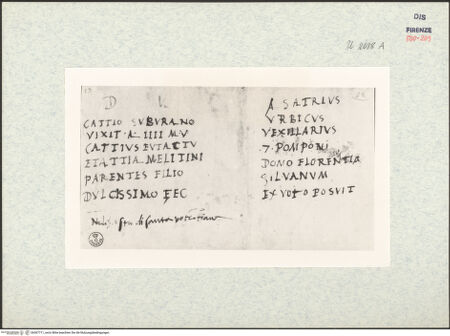 DIS
FIRENZE
D M
CATTIO SUBURANO
VIXIT A IIII M V
CATTIVS EVTACTV
ETATTIA MELITINI
PARENTES FILIO
DVLCISSIMO FEC
A SATRIUS
VRBICUS
VEXILLARIUS
7 POMPONI
DONO FLORENTIA
SILVANUM
EX VOTO POSVIT